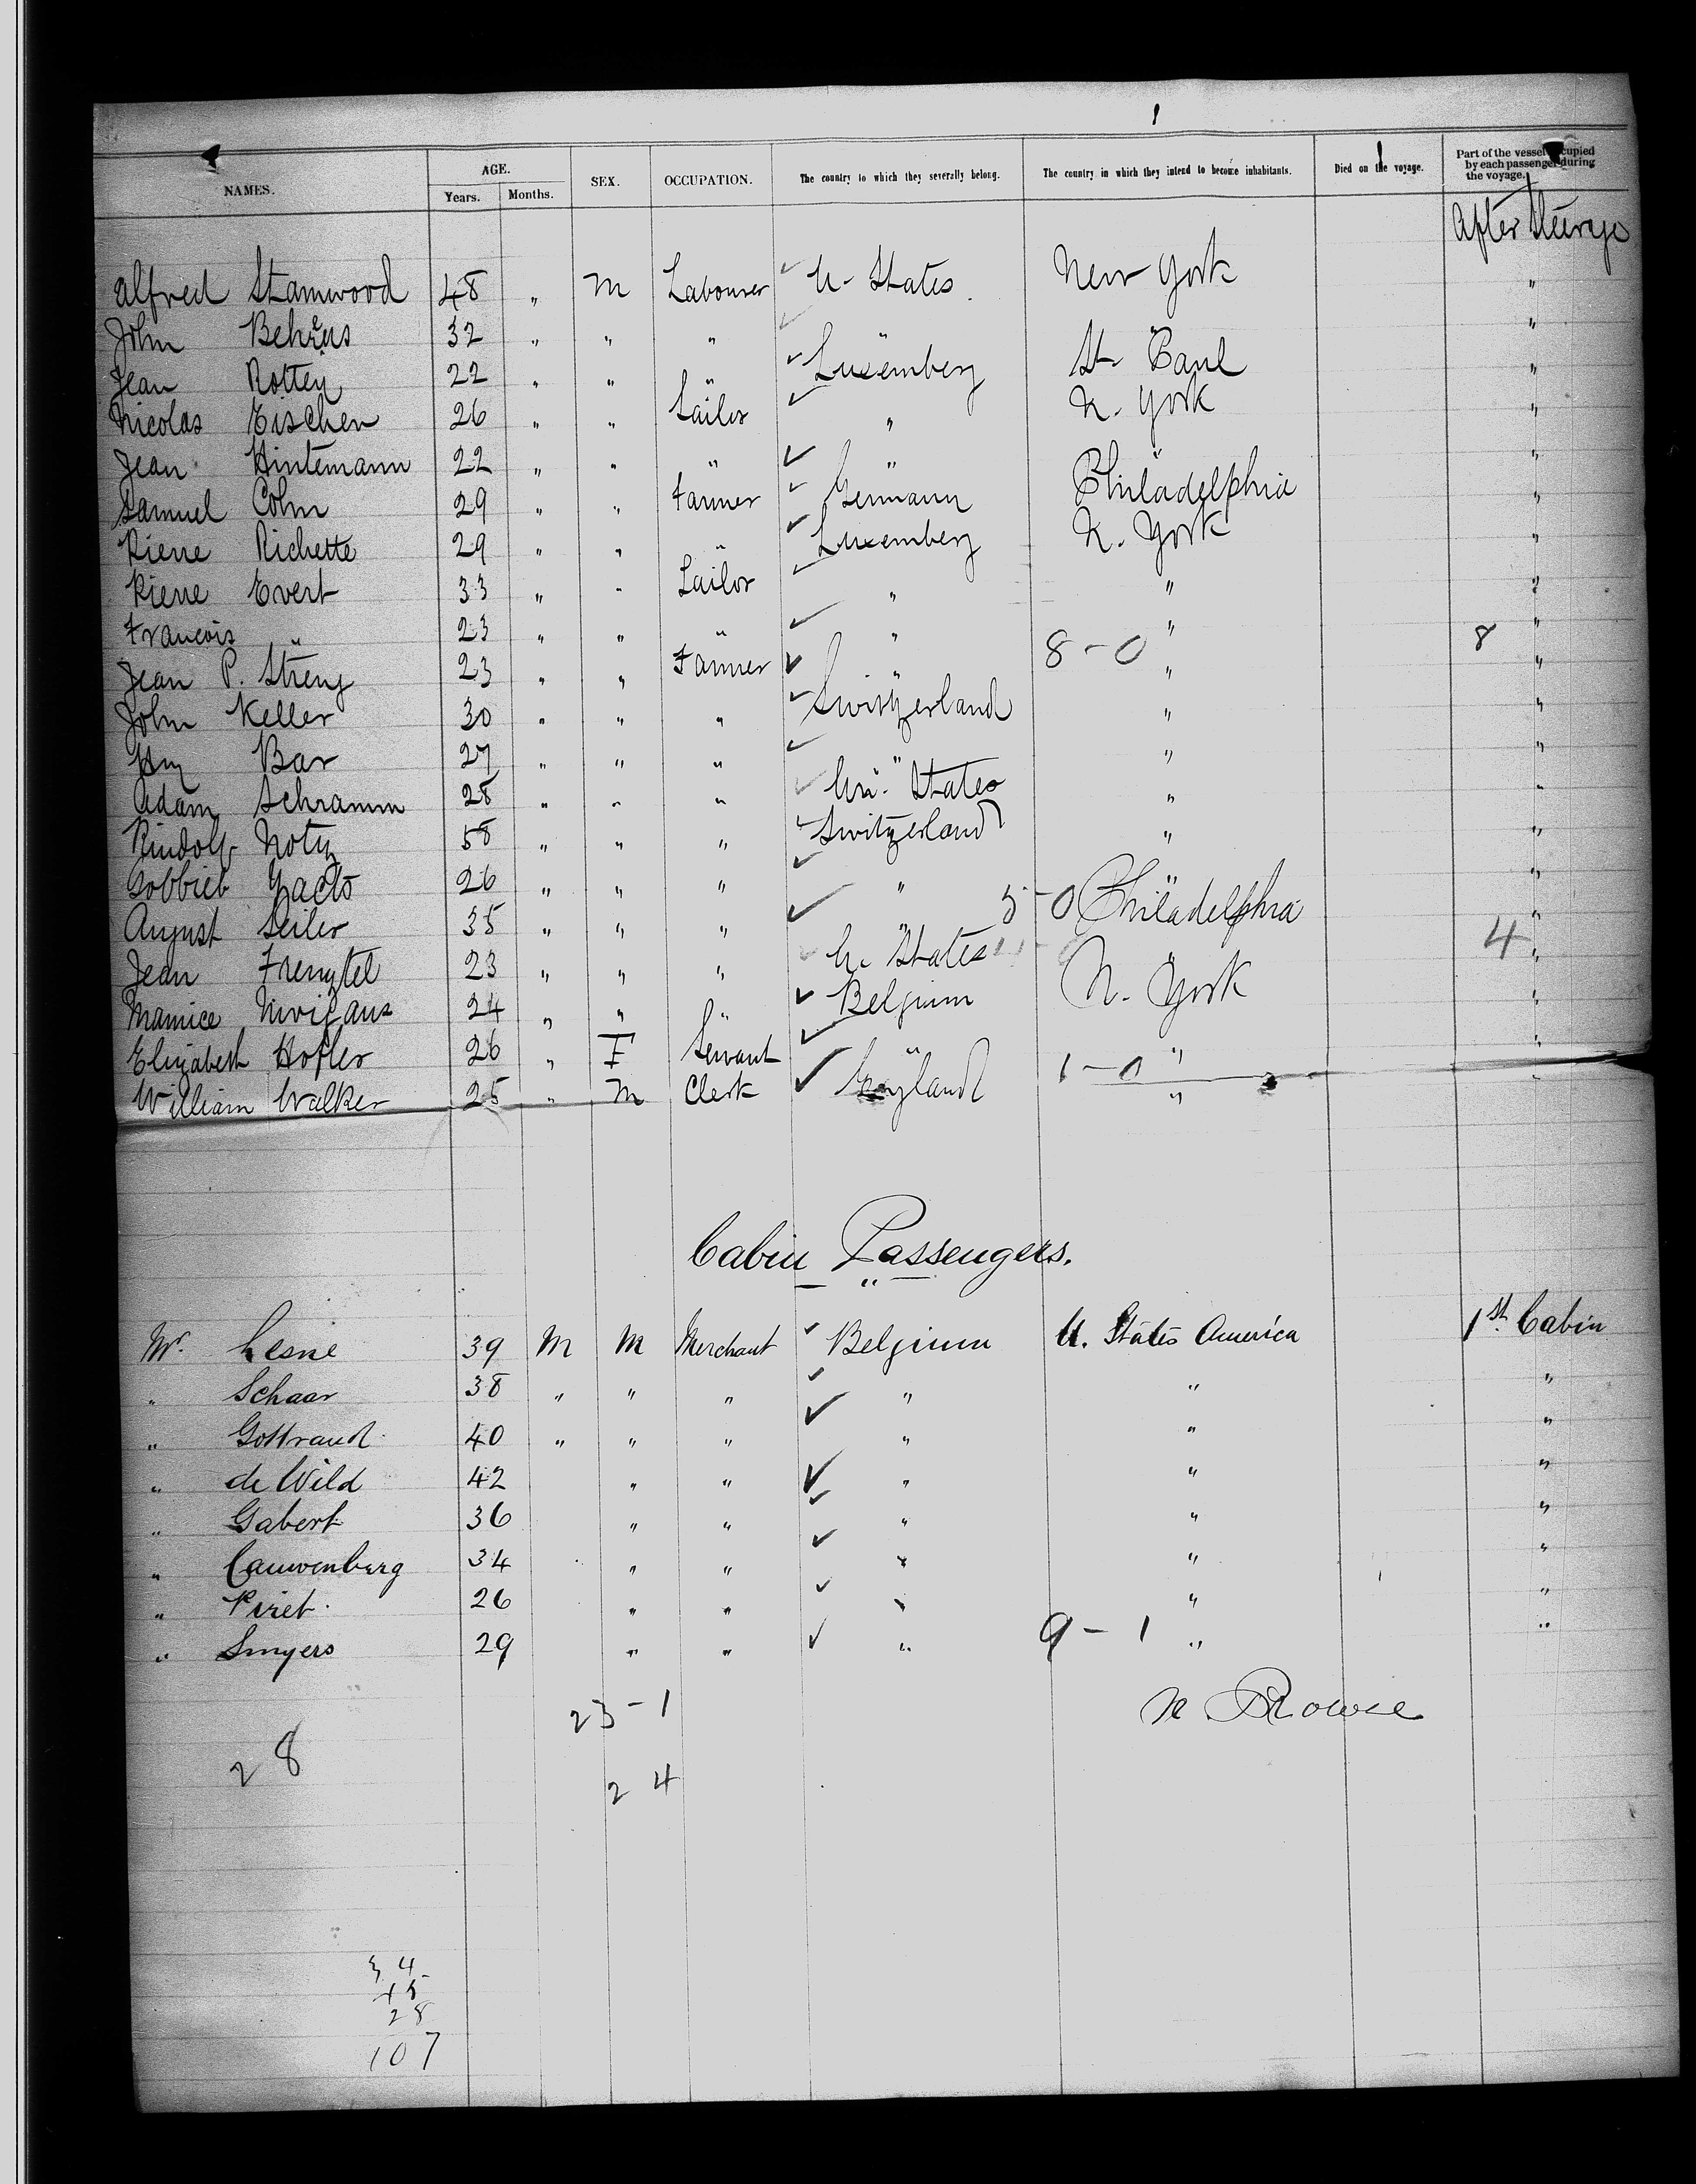 NAMES. AGE. Years. Months. SEX. OCCUPATION. The country to which they severally belong. The country in which they intend to become inhabitants. Died on the voyage. Part of the vessel occupied by each passenger during the voyage.
After Steerge
Alfred Stamwood 48 " M Labourer U. States New York "
John Behrens 32 " " " "
Jean Rottey 22 " " " Luxemberg St Paul "
Nicolas Eischen 26 " " Tailor " N. York "
Jean Hintemann 22 " " " " " "
Samuel Cohn 29 " " Farmer Germany Philadelphia "
Pierre Richette 29 " " " Luxemberg N. York "
Pierre Evert 33 " " Tailor " " "
Francois " 23 " " " " " "
Jean P. Streng 23 " " Farmer " 8-0 " 8 "
John Keller 30 " " " Switzerland " "
Hy Bar 27 " " " " " "
Adam Schramm 28 " " " Un. States " "
Rudolf Notz 58 " " " Switzerland " "
26 " " " " " "
August Seiler 35 " " " " 5-0 Philadelphia "
Jean 23 " " " U. States " 4 "
Maurice 24 " " " Belgium N. York "
Elizabeth Hofler 26 " F Servant " " "
William Walker 25 " M Clerk England 1-0 "
Cabin Passengers.
"
Mr. Lesne 39 M M Merchant Belgium U. States America 1st. Cabin
" Schaar 38 " " " " " "
" Gottrand 40 " " " " " "
" de Wild 42 " " " " "
" Gabert 36 " " " " "
" Cauwenberg 34 " " " " "
" Piret 26 " " " " "
" Smyers 29 " " " 9-1 " "
23-1
28
24
34
45
28
107